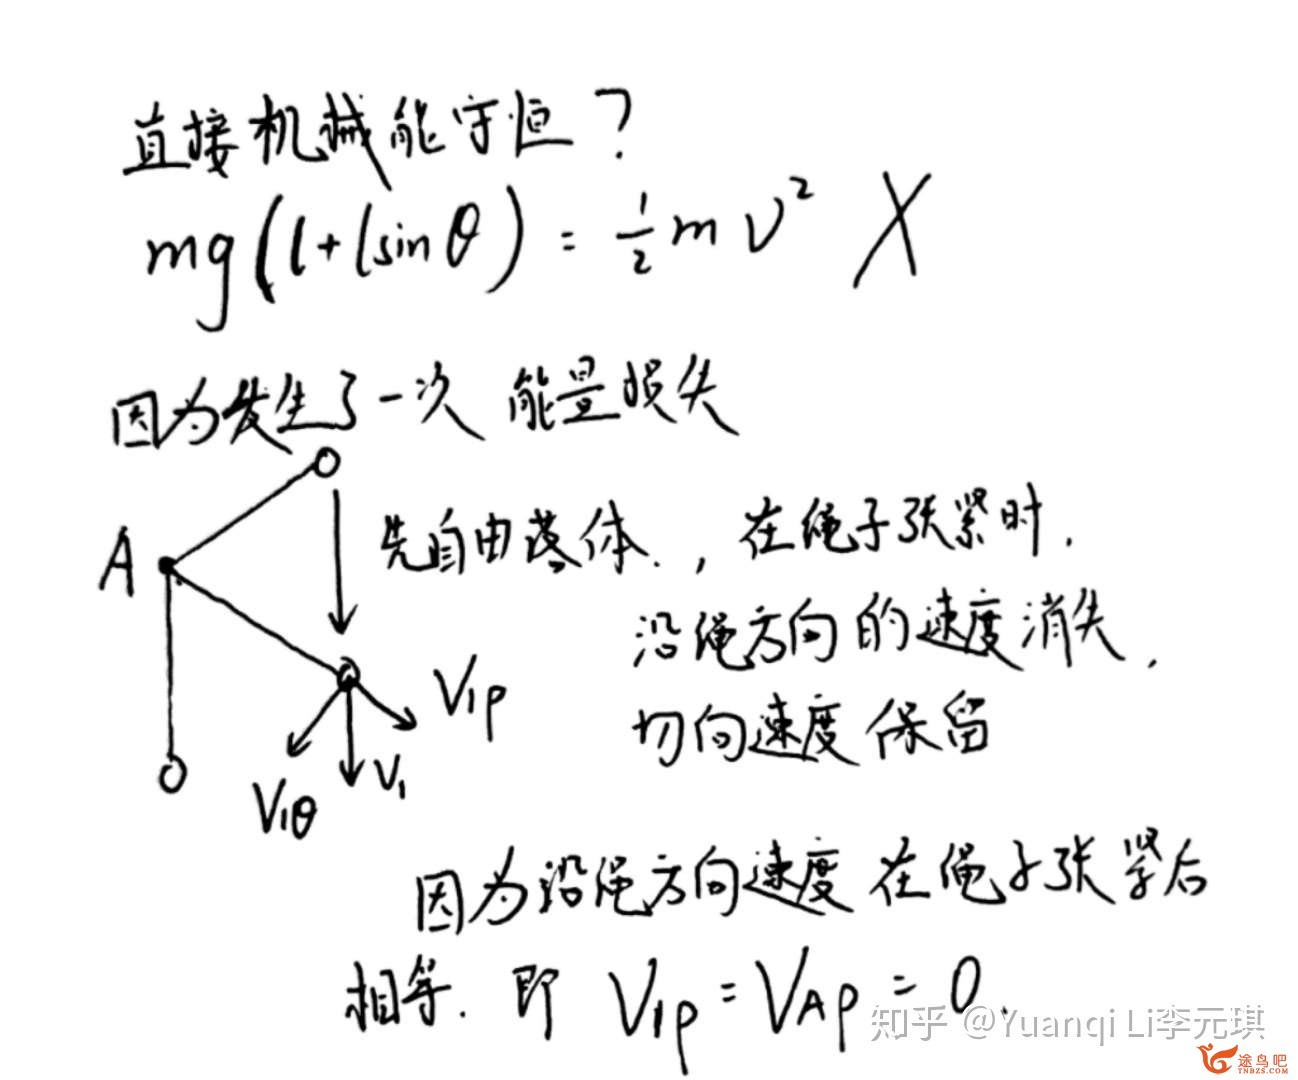 直接机械能守恒?
mg(l+lsinθ) = 1/2 mv² X
因为发生了一次 能量损失
A
先自由落体, 在绳子张紧时.
沿绳方向的速度消失,
切向速度保留
V₁ρ
V₁
V₁θ
因为沿绳方向速度在绳子张紧后
相等. 即 V₁ρ = VAρ = 0.
知乎 @Yuanqi Li李元琪
途鸟吧
TNBZS.COM